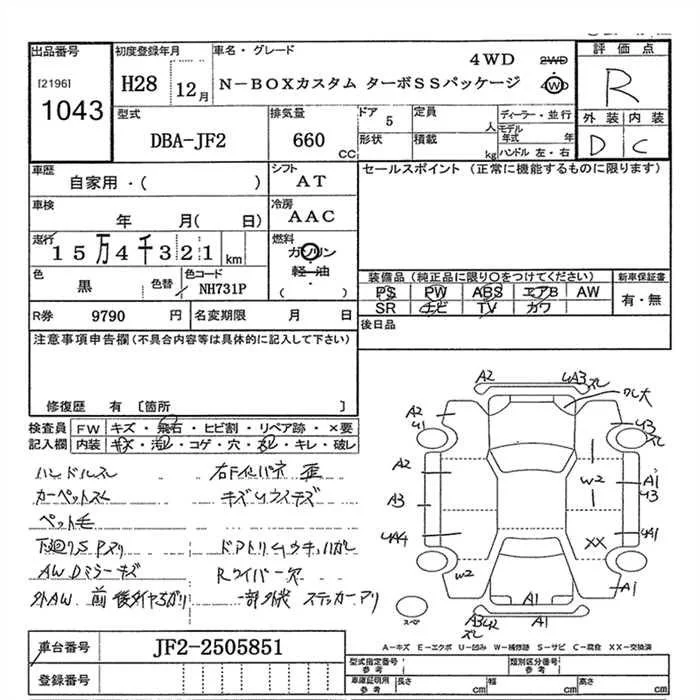 出品番号 初度登録年月 車名・グレード 評価点
[2196] 1043
H28 12月
N-BOXカスタム ターボSSパッケージ 4WD
2WD
4WD
R
外装 内装
D C
型式 DBA-JF2
排気量 660 CC
ドア 5
定員 人
形状
積載 kg
ディーラー・並行
モデル年式 年
ハンドル 左・右
車歴 自家用・( )
シフト AT
セールスポイント (正常に機能するものに限ります)
車検 年 月( 日)
冷房 AAC
走行 15万4千321 km
燃料 ガソリン
軽・油
( )
色 黒 色替 色コード NH731P
装備品 (純正品に限り○をつけてください) 新車保証書
PS PW ABS エアB AW 有・無
SR ナビ TV カワ
R券 9790 円 名変期限 月 日
後日品
注意事項申告欄(不具合内容等は具体的に記入して下さい)
修復歴 有 [箇所 ]
検査員 FW キズ・飛石・ヒビ割・リペア跡・×要
記入欄 内装 キズ・汚レ・コゲ・穴・スレ・キレ・破レ
ハンドルスレ
カーペットスレ キズウスイキズ
ペット毛
ドアトリムウキ、ハガレ
AWDミラーキズ Rワイパー欠
外AW 前後タイヤ3分り 一部外装 ステッカーアリ
A2 4A3 スレ
A2 U1 U3 スレ
A2 W2 A1 U3
A3
4A4 XX 4A1
W2 A1
スペア A3 U2 スレ
A-キズ E-エクボ U-凹み W-補修跡 S-サビ C-腐食 XX-交換済
車台番号 JF2-2505851
登録番号
型式指定番号 参考 類別区分番号 参考
車庫証明用 参考 長さ cm 幅 cm 高さ cm